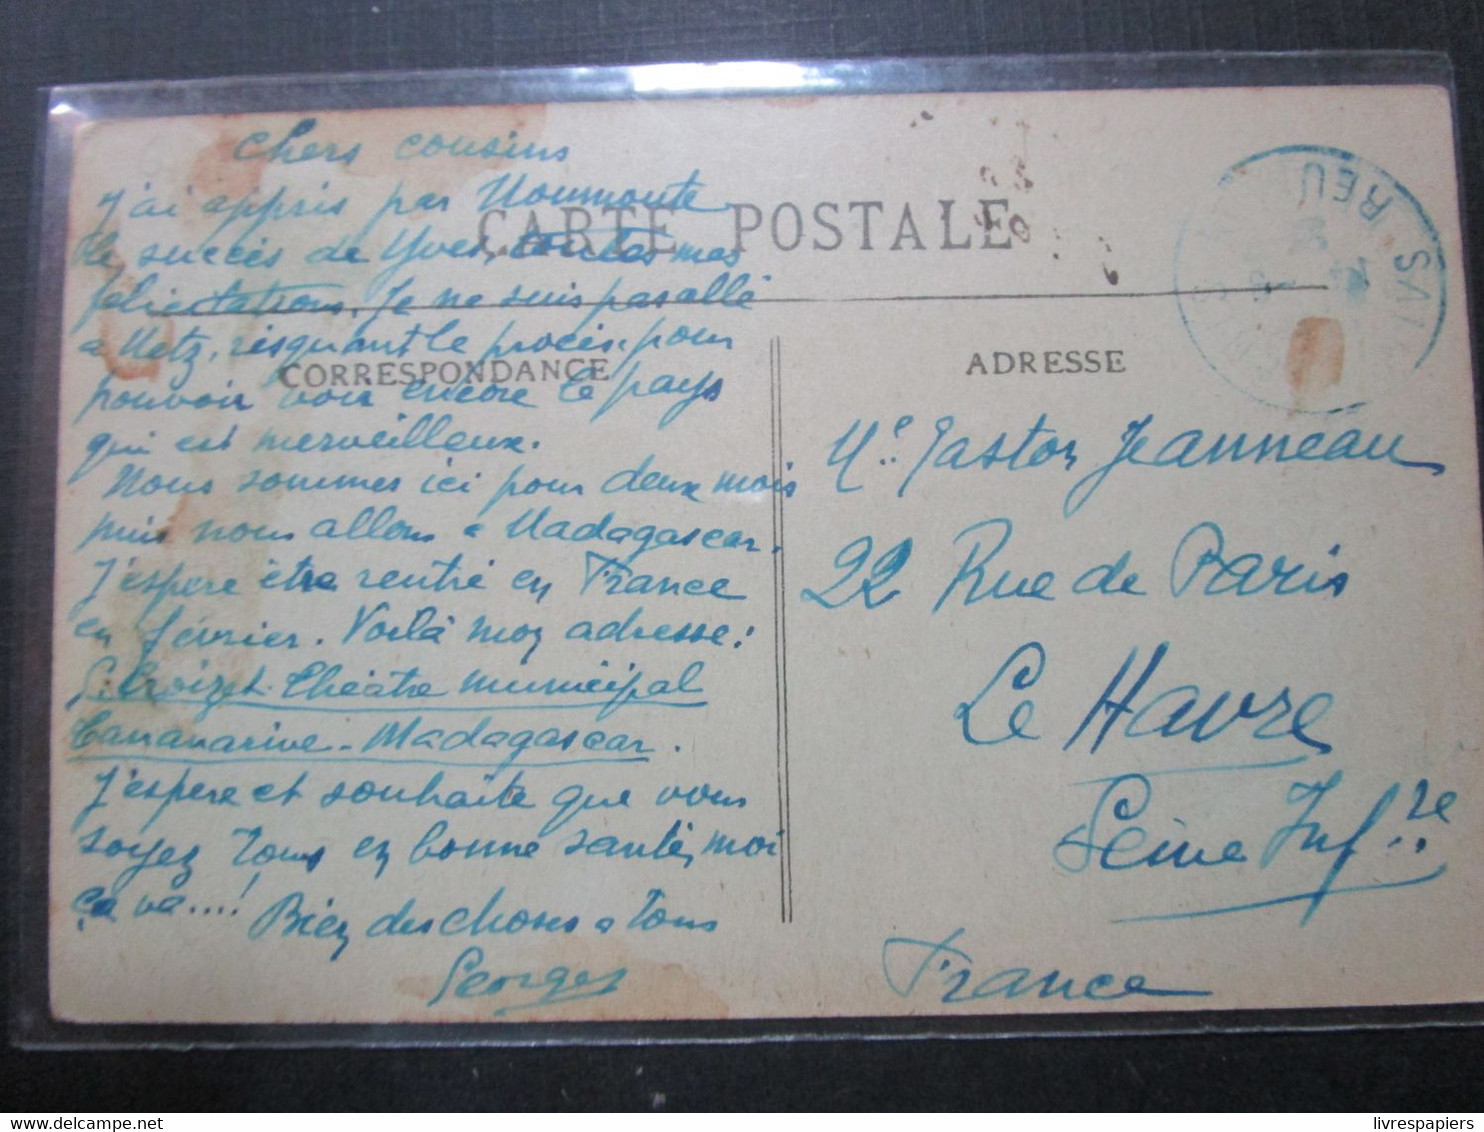 Chers cousins
J'ai appris par Noumoute
le succès de Yves, toutes mes
félicitations. Je ne suis pas allé
a Metz, risquant le procès, pour
pouvoir voir encore le pays
qui est merveilleux.
Nous sommes ici pour deux mois
puis nous allons a Madagascar.
J'espere être rentré en France
en février. Voilà mon adresse:
G. Croizet. Théâtre municipal
Tananarive - Madagascar.
J'espere et souhaite que vous
soyez Tous en bonne santé, moi
ça va....!
Bien des choses a Tous
Georges
CARTE POSTALE
CORRESPONDANCE
ADRESSE
Mr. Gaston Jeanneau
22 Rue de Paris
Le Havre
Seine Infre
France
REU
livrespapiers